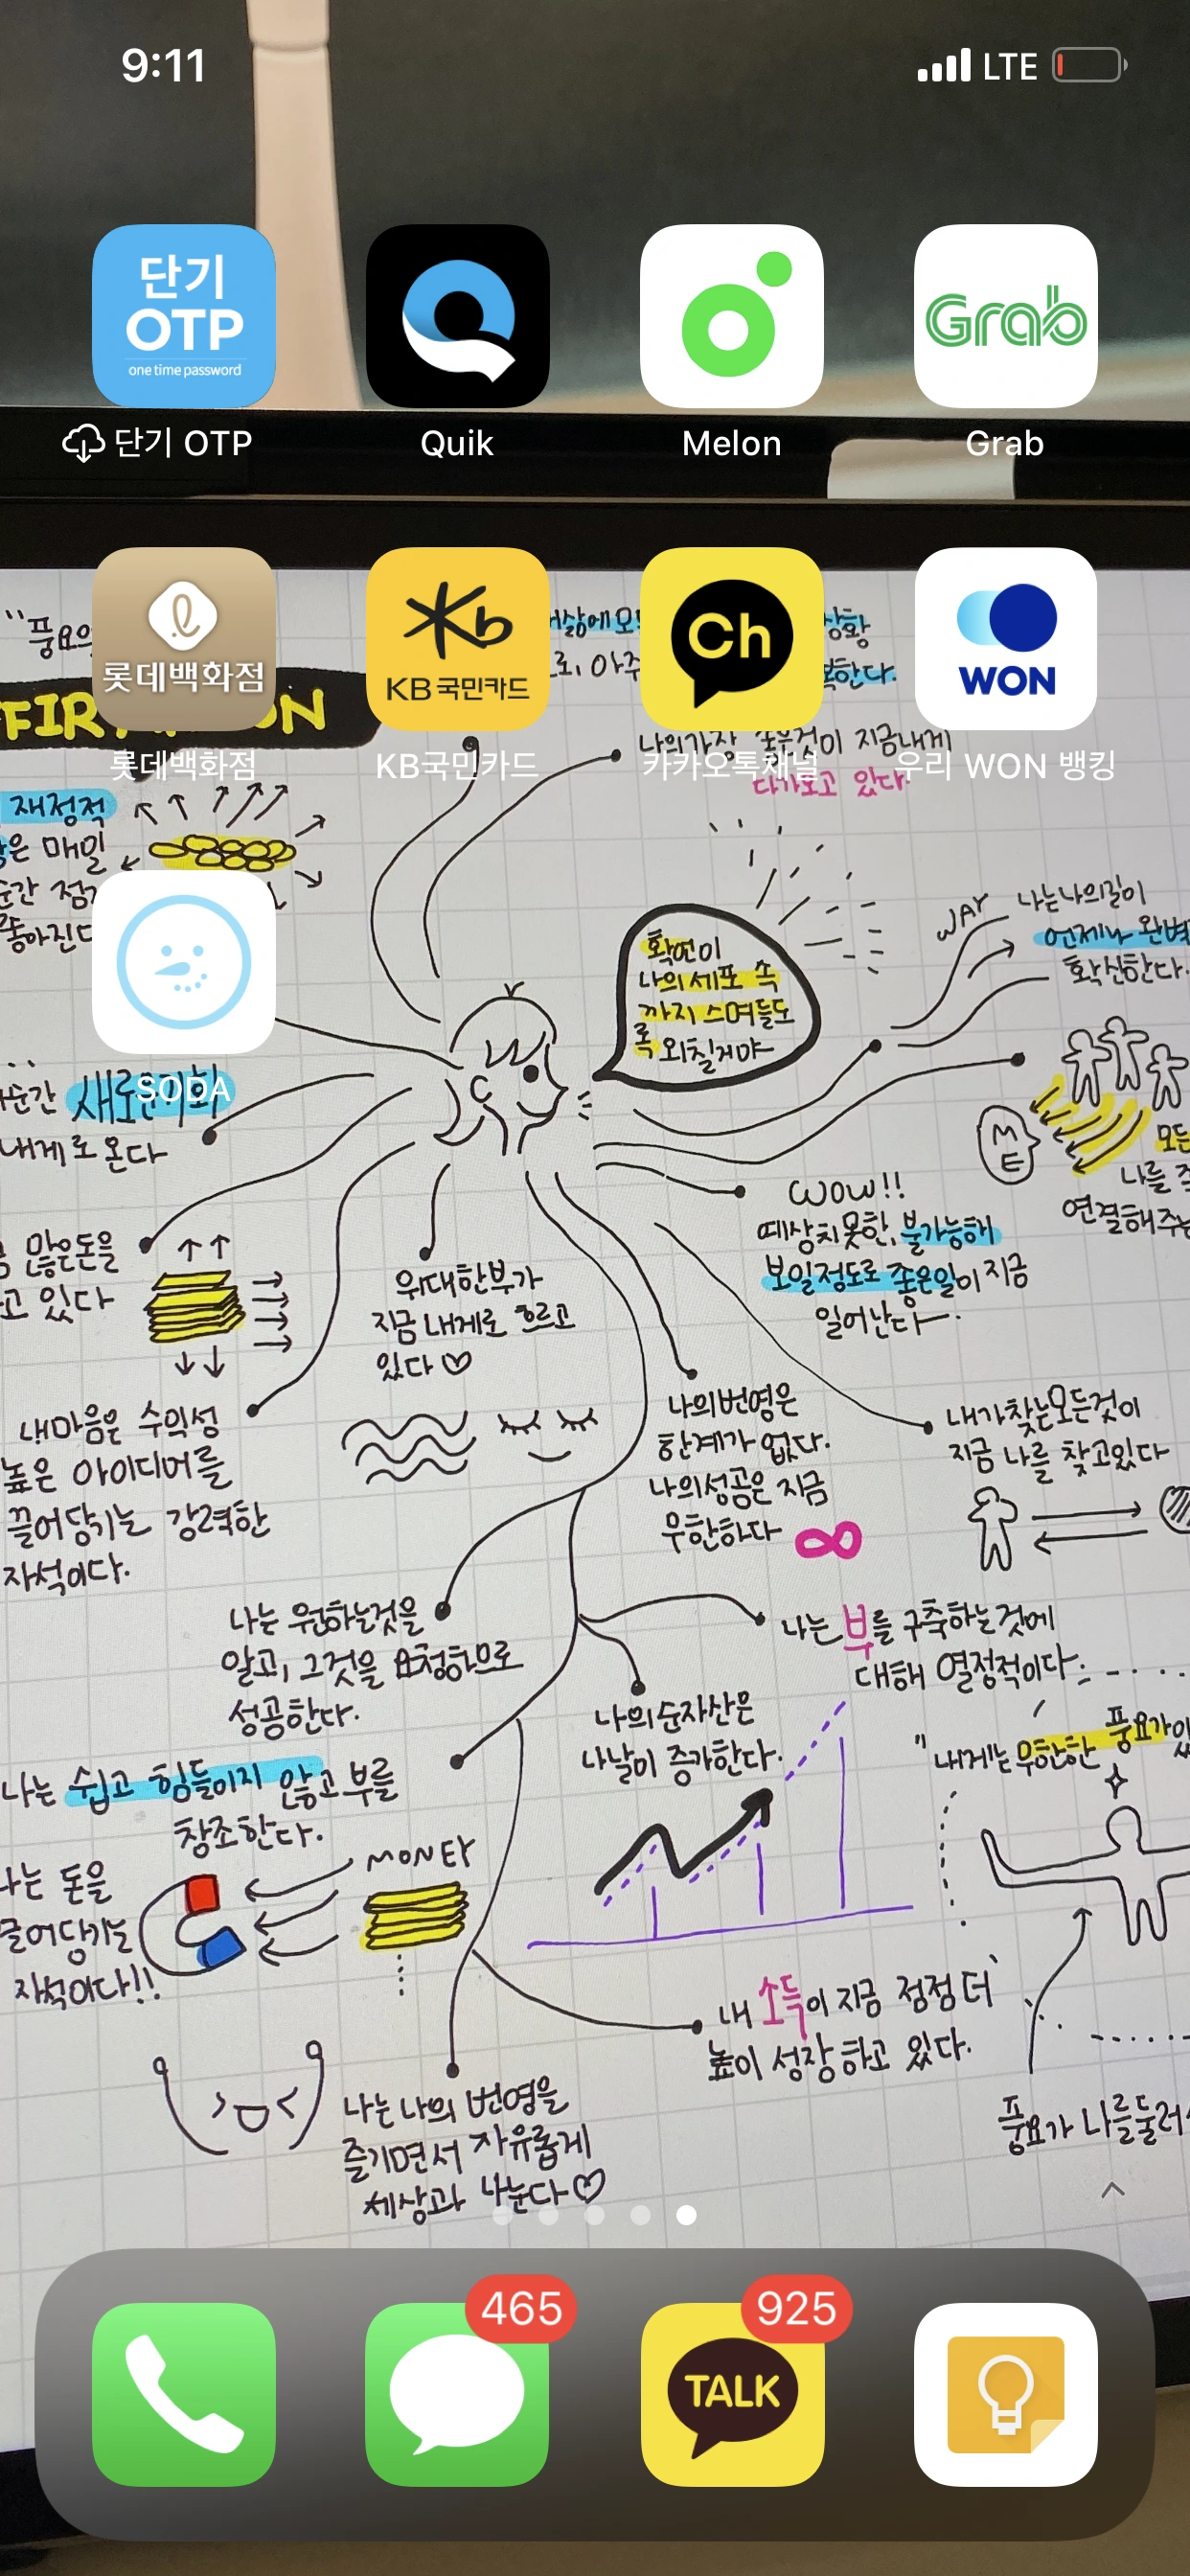 9:11
LTE
단기
OTP
one time password
단기 OTP
Quik
Melon
Grab
Grab
롯데백화점
KB국민카드
Ch
WON
롯데백화점
KB국민카드
카카오톡채널
우리 WON 뱅킹
나의가장 이 지금내게
다가오고 있다.
재정적
은 매일
순간
좋아진다
확언이
나의 세포 속
까지 스며들도
록 외칠거야
WAY
나는나의길이
언제나 완벽
확신한다.
SODA
순간
내게로 온다
ME
모든
나를
연결해주
WOW!!
예상치못한, 불가능해
보일정도로 좋은일이 지금
일어난다
많은돈을
고 있다
위대한부가
지금 내게로 흐르고
있다♡
내마음은 수익성
높은 아이디어를
끌어당기는 강력한
자석이다.
나의번영은
한계가 없다.
나의성공은 지금
무한하다 ∞
내가찾는모든것이
지금 나를 찾고있다
나는 원하는것을
알고, 그것을 요청하므로
성공한다.
나는 부를 구축하는것에
대해 열정적이다.
나의순자산은
나날이 증가한다.
"내게는 무한한 풍요가있
나는 쉽고 힘들이지 않고 부를
창조한다.
MONEY
나는 돈을
끌어당기는
자석이다!!
내 소득이 지금 점점 더
높이 성장하고 있다.
나는 나의 번영을
즐기면서 자유롭게
세상과 나눈다♡
풍요가 나를둘러
465
925
TALK